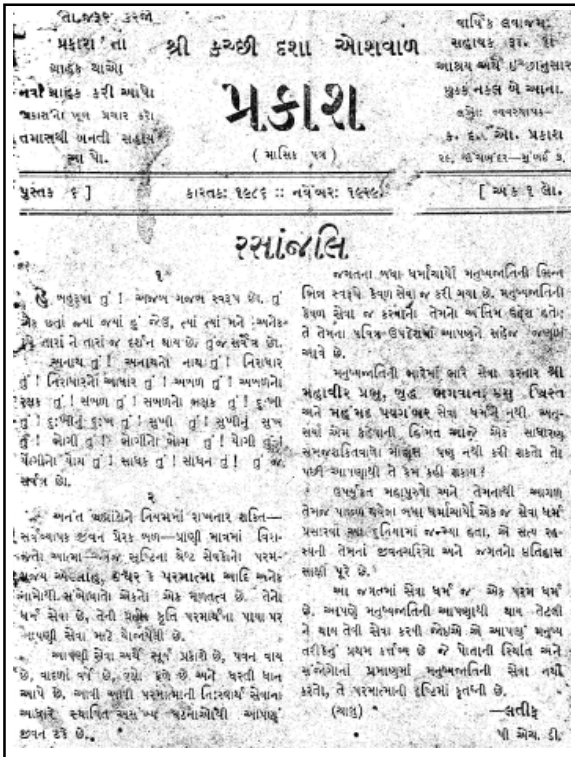 તા. જરૂર કરજો
પ્રકાશ'ના
ગ્રાહક થાઓ
નવા ગ્રાહક કરી આપો
પ્રકાશનો ખૂબ પ્રચાર કરો
તમારાથી બનતી સહાય
આપો.
શ્રી કચ્છી દશા ઓશવાળ
પ્રકાશ
( માસિક પત્ર )
વાર્ષિક લવાજમ:
સહાયક રૂા.
આશ્રય અર્થે ઇચ્છાનુસાર
છુટક નકલ બે આના.
વ્યવસ્થાપક–
ક. દ. ઓ. પ્રકાશ
પુસ્તક ૬ ]
કારતક: ૧૯૮૬ :: નવેંબર: ૧૯૨૯.
[ અંક ૧ લો.
રસાંજલિ
૧
બહુરૂપા તું ! અજબ ગજબ સ્વરૂપ છો. તું
એક છતાં જ્યાં જ્યાં હું જોઉં, ત્યાં ત્યાં મને અનેક
રૂપે તારાં ને તારાં જ દર્શન થાય છે. તું જ સર્વત્ર છો.
અનાથ તું ! અનાથનો નાથ તું ! નિરાધાર
તું ! નિરાધારનો આધાર તું ! અબળ તું ! અબળનો
રક્ષક તું ! સબળ તું ! સબળનો ભક્ષક તું ! દુઃખી
તું ! દુઃખીનું દુઃખ તું ! સુખી તું ! સુખીનું સુખ
તું ! ભોગી તું ! ભોગીનો ભોગ તું ! યોગી તું !
યોગીનો યોગ તું ! સાધક તું ! સાધન તું ! તું જ
સર્વત્ર છો.
૨
અનંત બ્રહ્માંડોને નિયમમાં રાખનાર શક્તિ—
સર્વવ્યાપક જીવન પ્રેરક બળ—પ્રાણી માત્રમાં
આત્મા— સૃષ્ટિના શ્રેષ્ટ સેવકોનો પરમ-
ઇશ્વર કે પરમાત્મા આદિ અનેક
નામોથી એકનો એક મૂળતત્વ છે. તેનો
ધર્મ સેવા છે, તેની પ્રત્યેક કૃતિ પરમાર્થના પાયા પર
આપણી સેવા માટે યોજાયેલી છે.
આપણી સેવા અર્થે સૂર્ય પ્રકાશે છે, પવન વાય
છે, વાદળાં વર્ષે છે, છે અને ધરતી ધાન
આપે છે. આવી આવી પરમાત્માની નિઃસ્વાર્થ સેવાના
આધારે સ્થાપિત અસંખ્ય ઘટનાઓથી આપણું
જીવન ટકે છે.
જગતના બધા ધર્માચાર્યો મનુષ્યજાતિની ભિન્ન
ભિન્ન સ્વરૂપે કેવળ સેવા જ કરી ગયા છે. મનુષ્યજાતિની
કેવળ સેવા જ કરવાનો તેમનો અંતિમ ઉદ્દેશ હતો:
તે તેમના પવિત્ર ઉપદેશમાં આપણને સહેજ જણાઇ
આવે છે.
મનુષ્યજાતિની ભારેમાં ભારે સેવા કરનાર શ્રી
મહાવીર પ્રભુ, બુદ્ધ ભગવાન, ઇસુ ખ્રિસ્ત
અને મહંમદ પયગંબર સેવા ધર્મી નથી.
એમ કહેવાની હિંમત આજે એક સાધારણ
સમજશક્તિવાળો માણસ પણ નથી કરી શકતો તો
પછી આપણાથી તે કેમ કહી શકાય ?
ઉપર્યુક્ત મહાપુરૂષો અને તેમનાથી આગળ
તેમજ પાછળ થયેલા બધા ધર્માચાર્યો એક જ સેવા ધર્મ
પ્રસારવા આ દુનિયામાં જન્મ્યા હતા, એ સત્ય રહ-
સ્યની તેમનાં જીવનચરિત્રો અને જગતનો ઇતિહાસ
સાક્ષી પૂરે છે.
આ જગતમાં સેવા ધર્મ જ એક પરમ ધર્મ
છે. આપણે મનુષ્યજાતિની આપણાથી થાય તેટલી
ને થાય તેવી સેવા કરવી જોઇએ એ આપણું મનુષ્ય
તરીકેનું પ્રથમ કર્તવ્ય છે જે પોતાની સ્થિતિ અને
સંજોગોનાં પ્રમાણમાં મનુષ્યજાતિની સેવા નથી
કરતો, તે પરમાત્માની દૃષ્ટિમાં કૃતઘ્ની છે.
(ચાલુ)
—લતીફ
પી એચ. ડી.